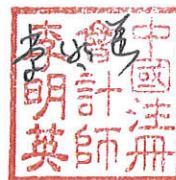 中國注冊
會計師
李明英